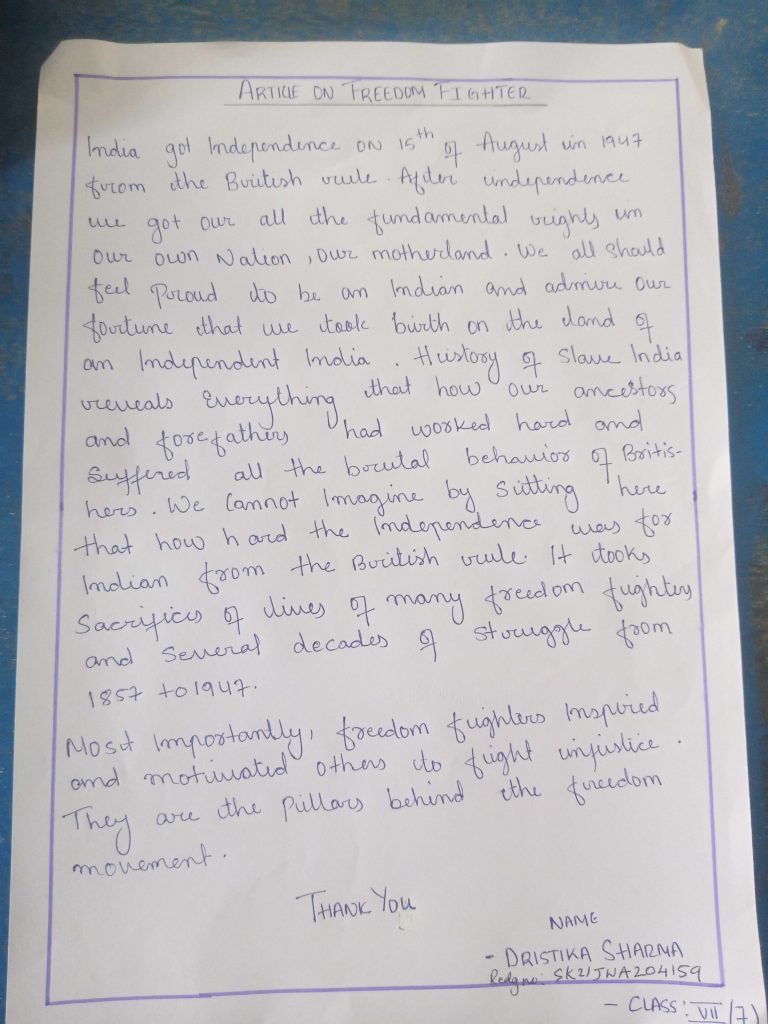 ARTICLE ON FREEDOM FIGHTER
India got Independence ON 15th of August in 1947
from the British rule. After independence
we got our all the fundamental rights in
our own Nation, our motherland. We all should
feel Proud to be an Indian and admire our
fortune that we took birth on the land of
an Independent India. History of Slave India
reveals Everything that how our ancestors
and forefathers had worked hard and
Suffered all the brutal behavior of Britis-
hers. We Cannot Imagine by sitting here
that how hard the Independence was for
Indian from the British rule. It tooks
Sacrifices of lives of many freedom fighters
and Several decades of struggle from
1857 to 1947.
Most Importantly, freedom fighters Inspired
and motivated others to fight injustice.
They are the pillars behind the freedom
movement.
THANK YOU
NAME
- DRISTIKA SHARMA
Redg no: SK21JNA204159
- CLASS: VII (7)